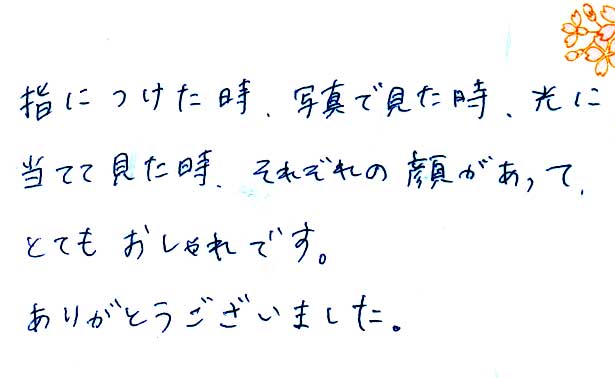 指につけた時、写真で見た時、光に
当てて見た時、それぞれの顔があって、
とてもおしゃれです。
ありがとうございました。